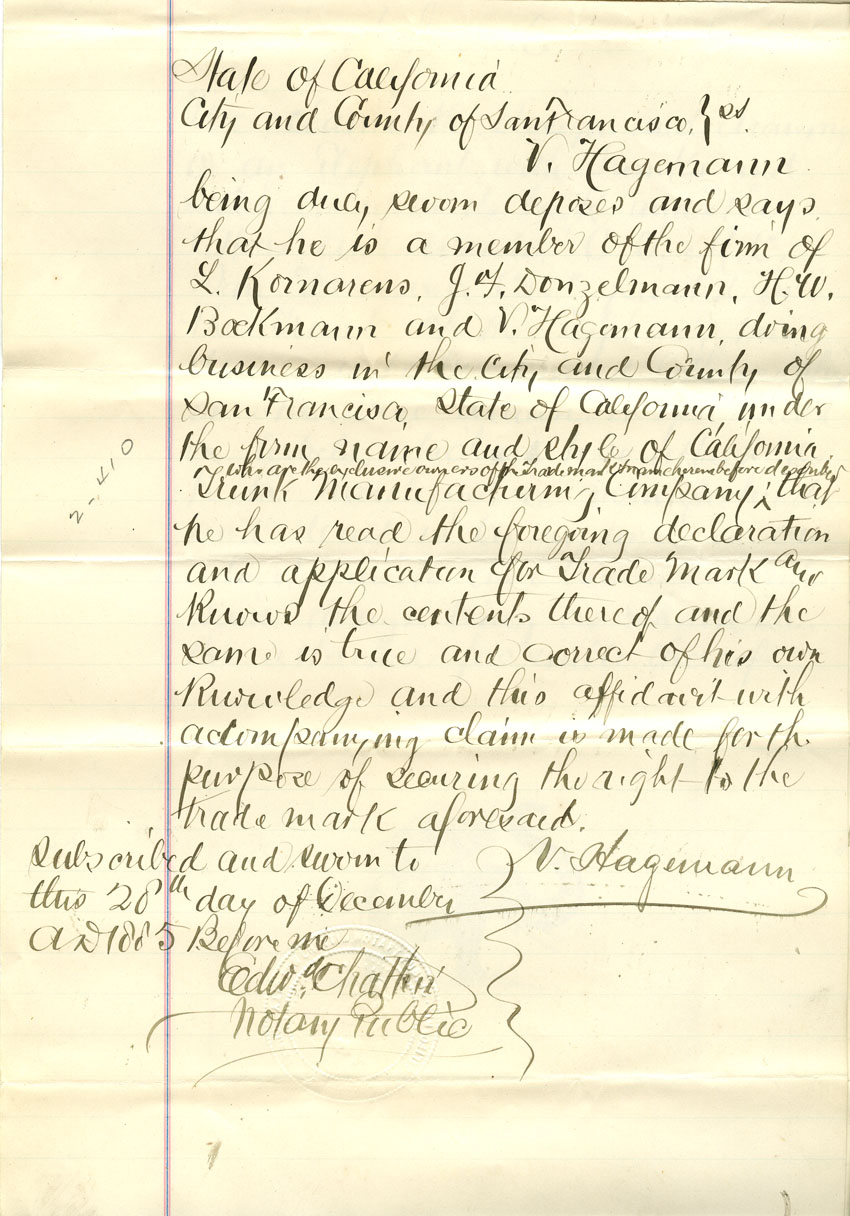 State of California
City and County of San Francisco, } ss.
V. Hagemann
being duly sworn deposes and says
that he is a member of the firm of
L. Kornarens, J. F. Donzelmann, H. W.
Bockmann and V. Hagemann, doing
business in the City and County of
San Francisco, State of California, under
the firm name and style of California
who are the exclusive owners of the Trade mark hereinbefore described
Trunk Manufacturing Company, ^ that
he has read the foregoing declaration
and application for Trade Mark and
knows the contents thereof and the
same is true and correct of his own
knowledge and this affidavit with
accompanying claim is made for the
purpose of securing the right to the
trade mark aforesaid.
V. Hagemann
Subscribed and sworn to
this 28th day of December
A D 1885 Before me
Edwd Chattin
Notary Public
2-410